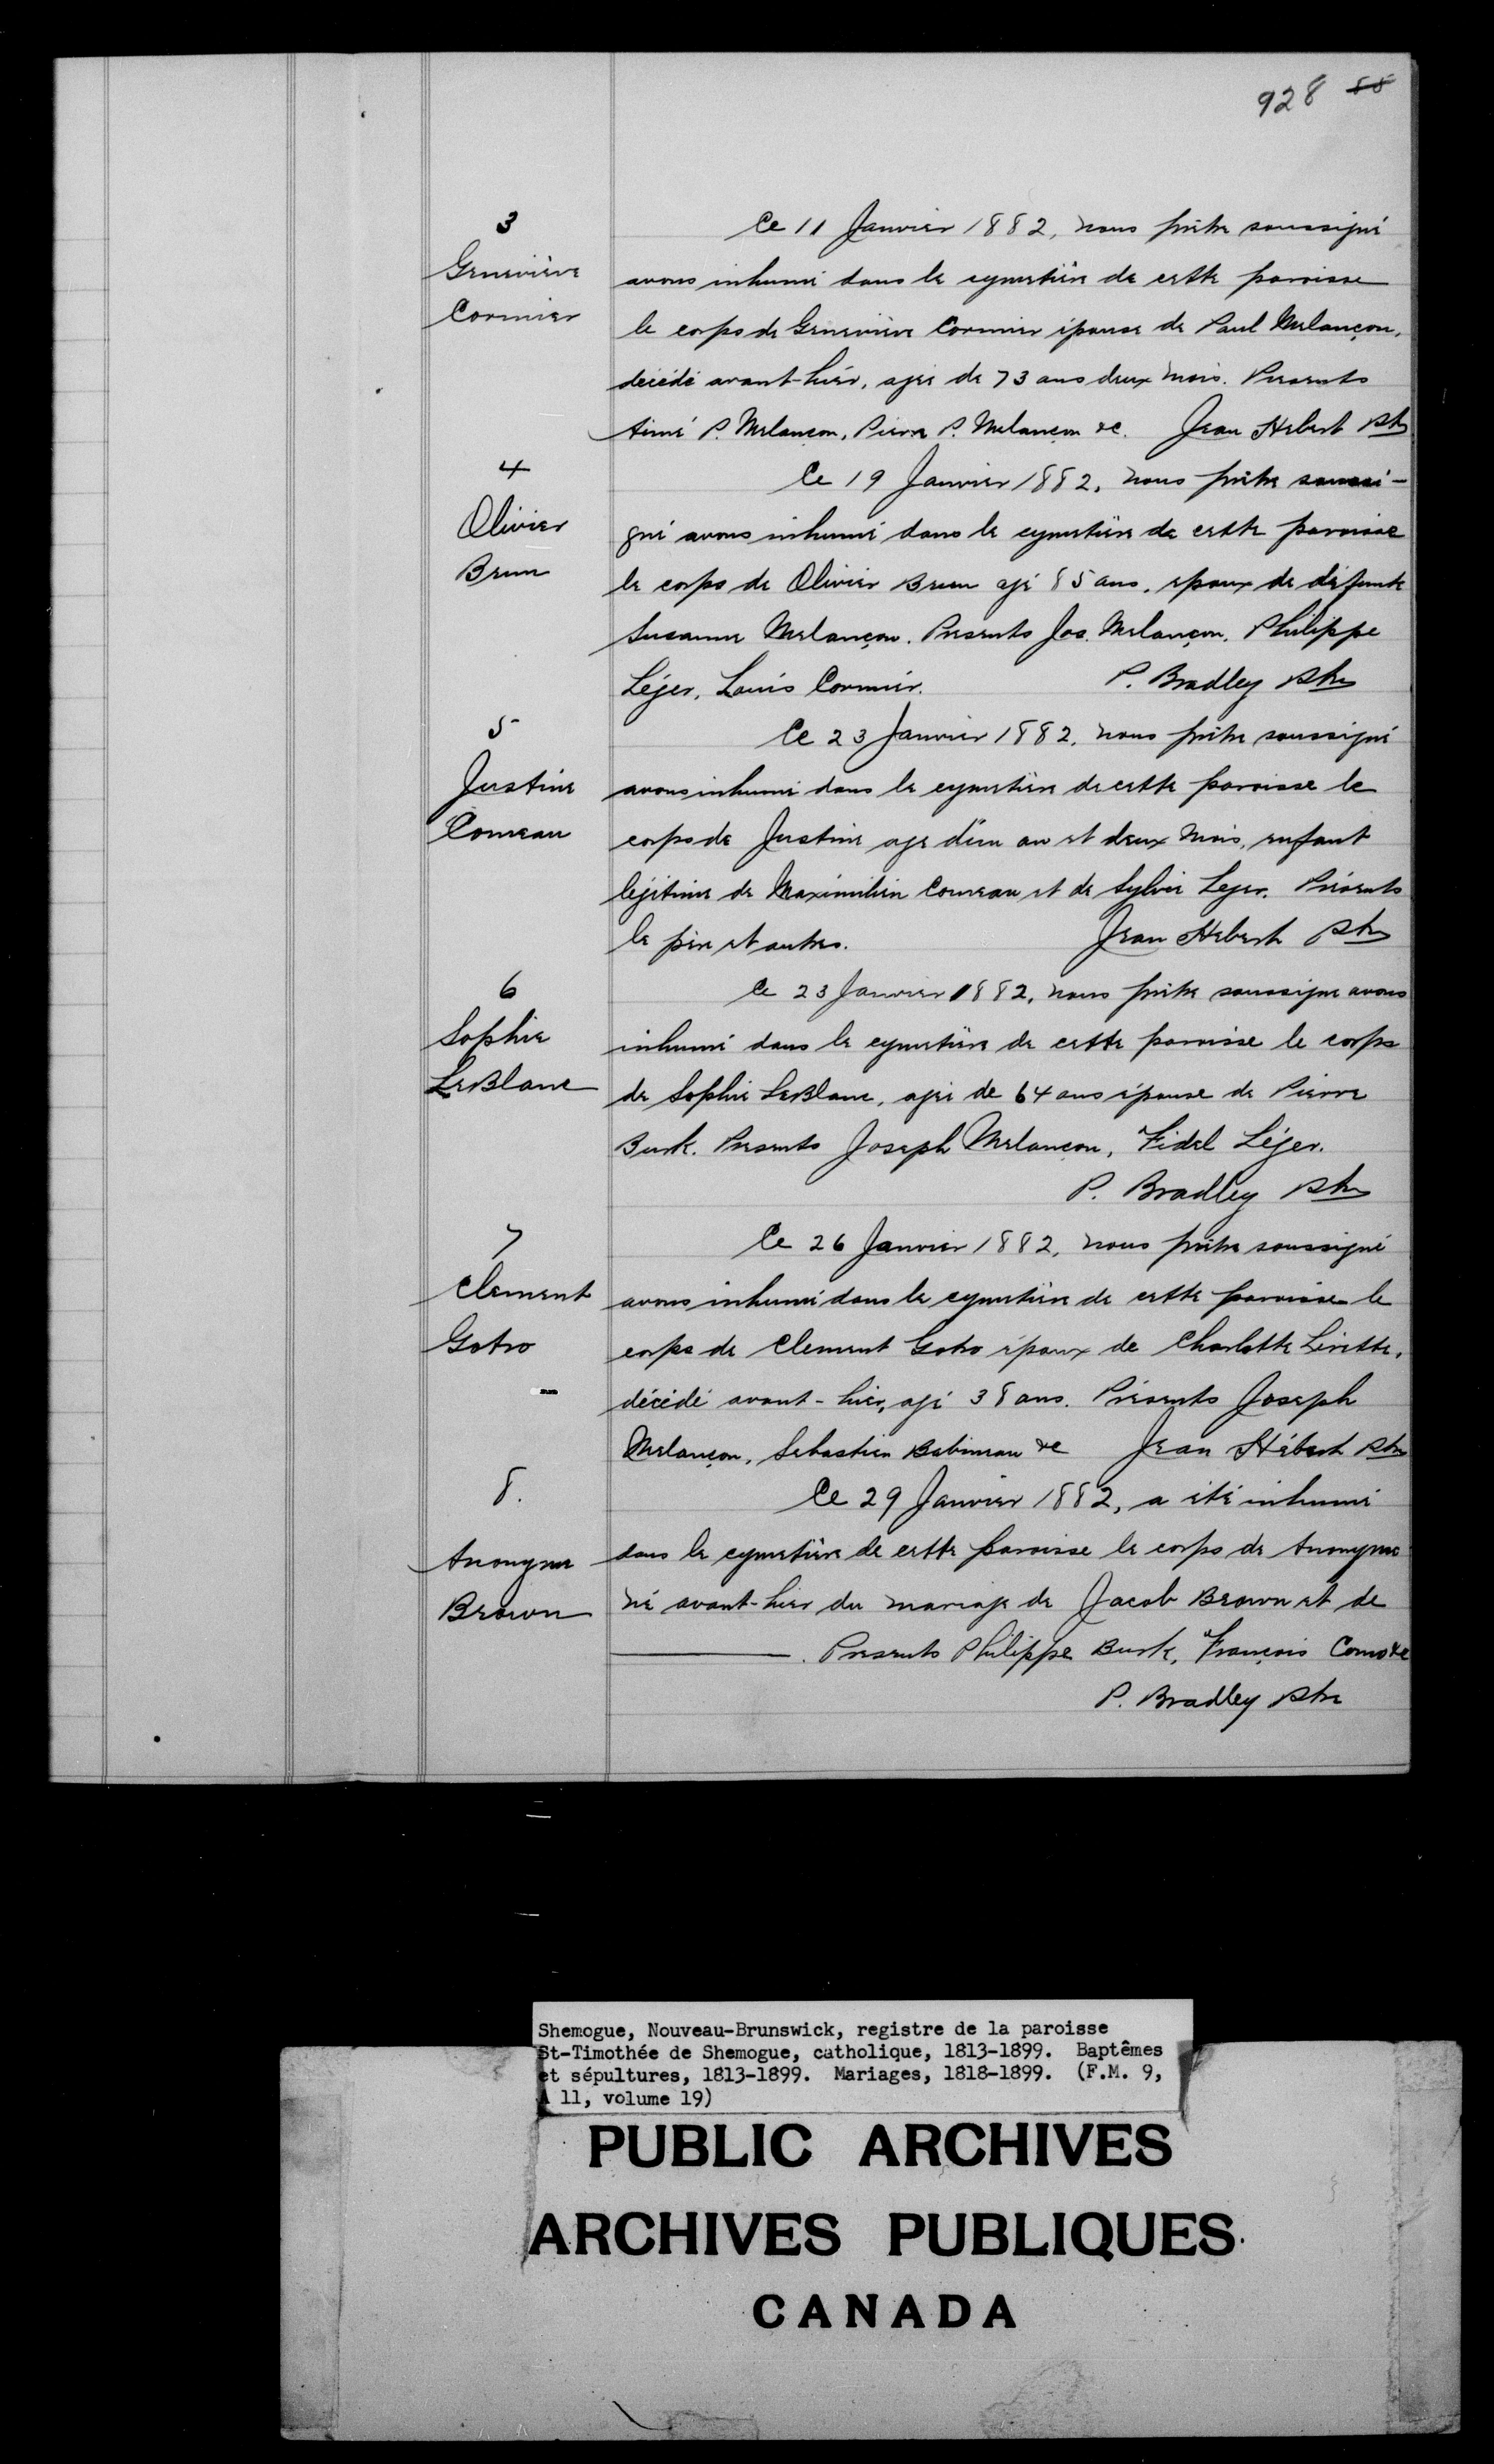 928 88
3
Geneviève
Cormier
Ce 11 Janvier 1882, nous prêtre soussigné
avons inhumé dans le cymetière de cette paroisse
le corps de Geneviève Cormier épouse de Paul Melançon,
décédé avant-hièr, agée de 73 ans deux mois. Presents
Aimé P. Melançon, Pierre P. Melançon &c. Jean Hebert Ptre
4
Olivier
Brun
Ce 19 Janvier 1882, nous prêtre soussi-
gné avons inhumé dans le cymetière de cette paroisse
le corps de Olivier Brun agé 85 ans, epoux de défunte
Susanne Melançon. Presents Jos. Melançon, Philippe
Léger, Louis Cormier. P. Bradley Ptre
5
Justine
Comeau
Ce 23 Janvier 1882, nous prêtre soussigné
avons inhumé dans le cymetière de cette paroisse le
corps de Justine age d'un an et deux mois, enfant
légitime de Maximilien Comeau et de Sylvie Leger. Présents
le père et autres. Jean Hebert Ptre
6
Sophie
LeBlanc
Ce 23 Janvier 1882, nous prêtre soussigne avons
inhumé dans le cymetière de cette paroisse le corps
de Sophie LeBlanc, agée de 64 ans épouse de Pierre
Burk. Presents Joseph Melancon, Fidel Léger.
P. Bradley Ptre
7
Clement
Gotro
Ce 26 Janvier 1882, nous prêtre soussigné
avons inhumé dans le cymetière de cette paroisse le
corps de Clement Gotro époux de Charlotte Lirette,
décédé avant-hier, agé 38 ans. Présents Joseph
Melançon, Sebastien Babineau &c Jean Hébert Ptre
8.
Anonyme
Brown
Ce 29 Janvier 1882, a été inhumé
dans le cymetière de cette paroisse le corps de Anonyme
né avant-hier du mariage de Jacob Brown et de
———. Presents Philippe Burk, François Como &c
P. Bradley Ptre
Shemogue, Nouveau-Brunswick, registre de la paroisse
St-Timothée de Shemogue, catholique, 1813-1899. Baptêmes
et sépultures, 1813-1899. Mariages, 1818-1899. (F.M. 9,
A 11, volume 19)
PUBLIC ARCHIVES
ARCHIVES PUBLIQUES
CANADA